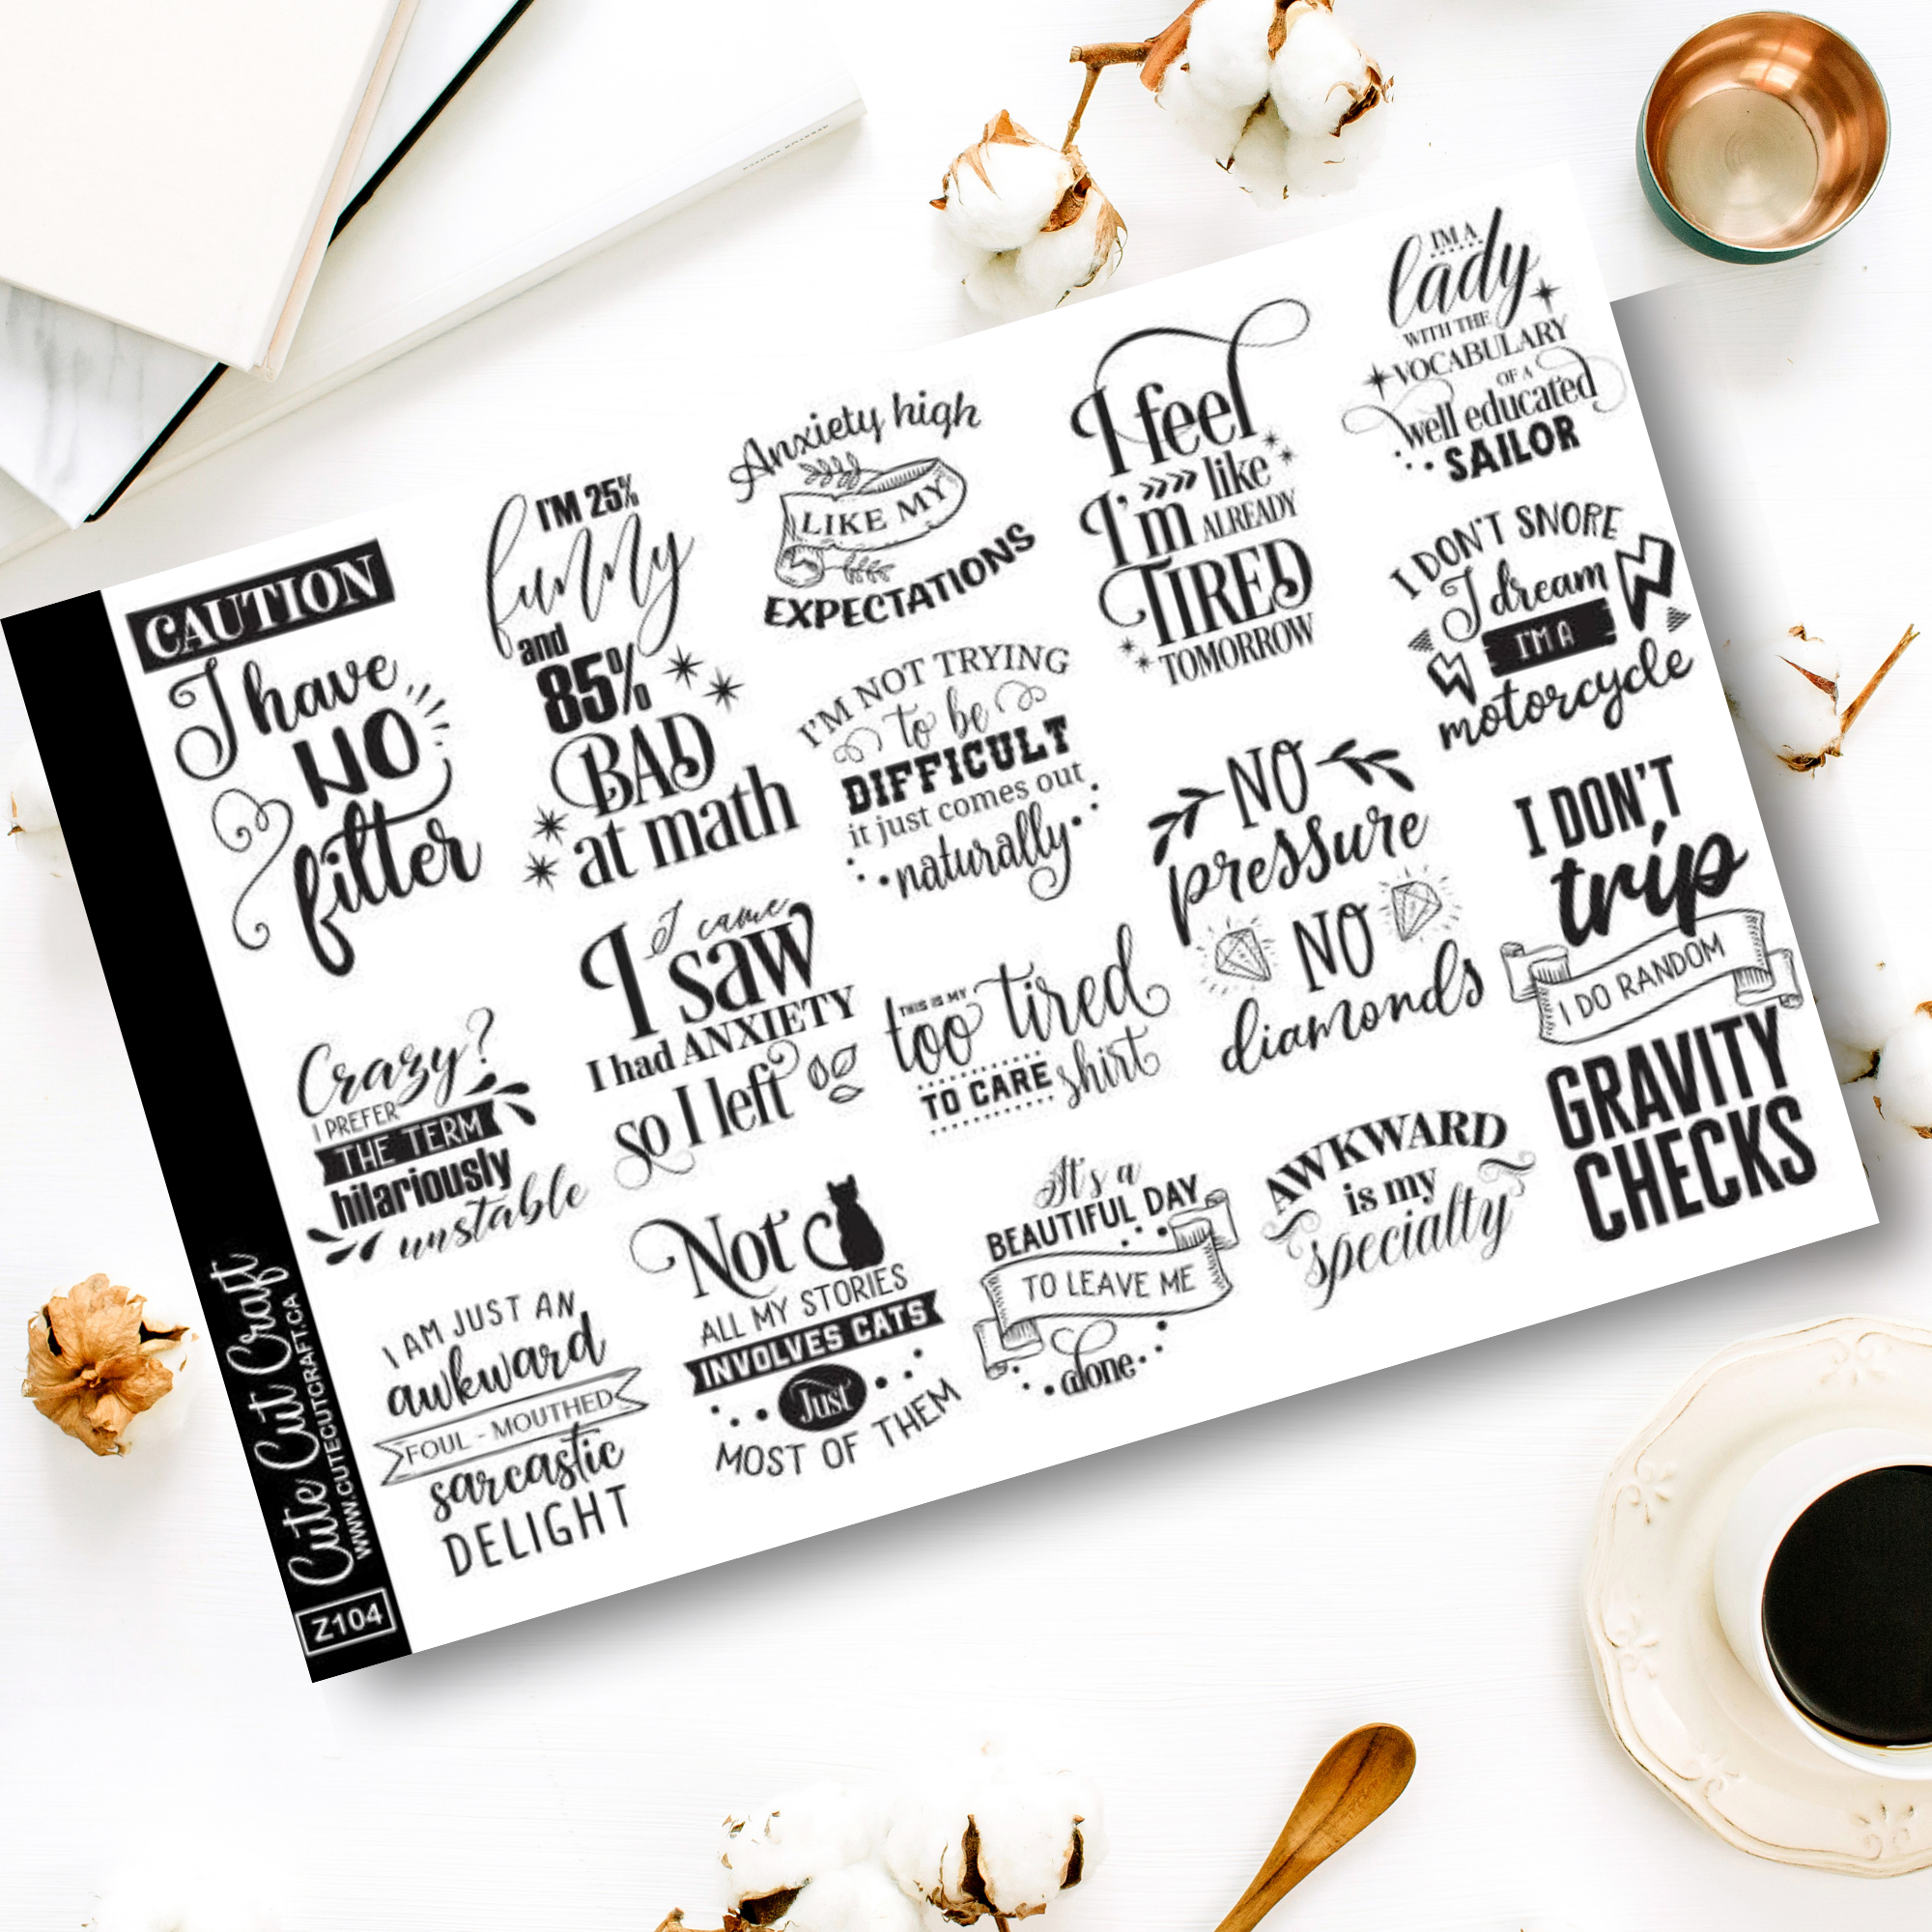 CAUTION
I have
NO
filter
I'M 25%
funny
and
85%
BAD
at math
Anxiety high
LIKE MY
EXPECTATIONS
I feel
like
I'm ALREADY
TIRED
TOMORROW
IM A
lady
WITH THE
VOCABULARY
OF A
well educated
SAILOR
I'M NOT TRYING
to be
DIFFICULT
it just comes out
naturally
I DON'T SNORE
I dream
I'M A
motorcycle
NO
pressure
NO
diamonds
I DON'T
trip
I DO RANDOM
GRAVITY
CHECKS
Crazy?
I PREFER
THE TERM
hilariously
unstable
I came
I saw
I had ANXIETY
so I left
THIS IS MY
too tired
TO CARE shirt
I AM JUST AN
awkward
FOUL - MOUTHED
sarcastic
DELIGHT
Not
ALL MY STORIES
INVOLVES CATS
Just
MOST OF THEM
It's a
BEAUTIFUL DAY
TO LEAVE ME
alone
AWKWARD
is my
specialty
Cute Cut Craft
WWW.CUTECUTCRAFT.CA
Z104